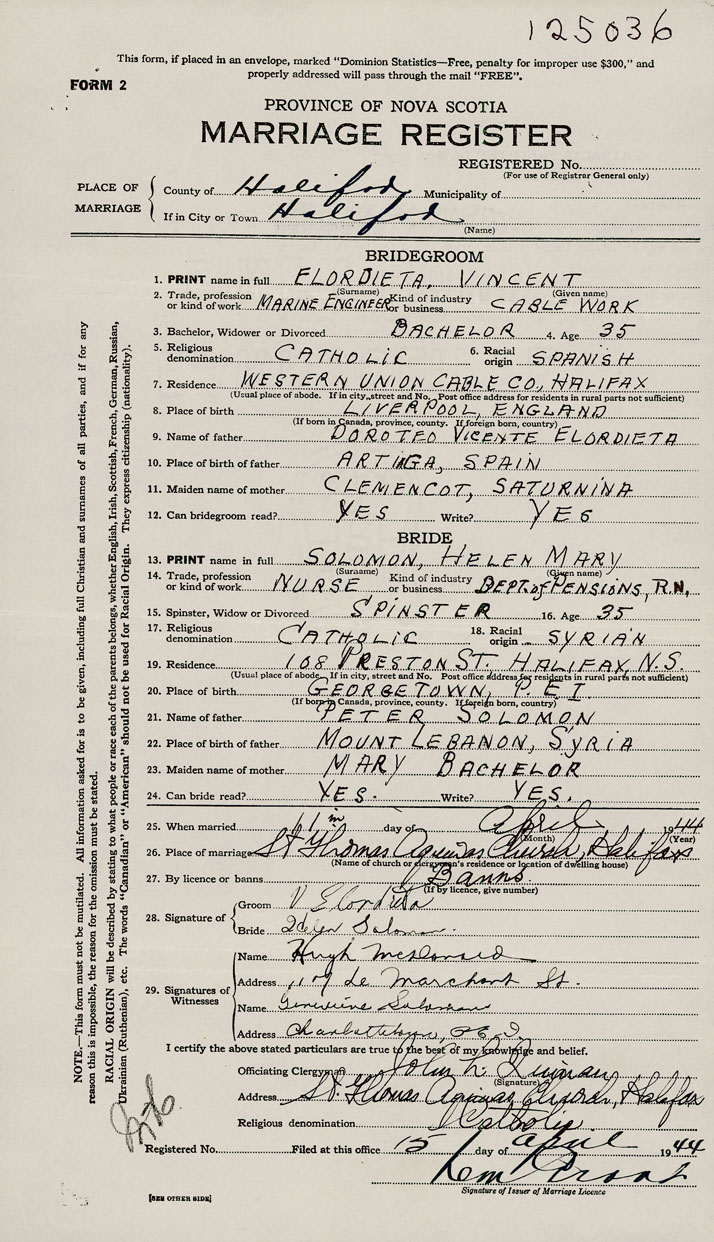 125036
This form, if placed in an envelope, marked "Dominion Statistics—Free, penalty for improper use $300," and
properly addressed will pass through the mail "FREE".
FORM 2
PROVINCE OF NOVA SCOTIA
MARRIAGE REGISTER
REGISTERED No.
(For use of Registrar General only)
PLACE OF MARRIAGE
County of Halifax Municipality of
If in City or Town Halifax
(Name)
BRIDEGROOM
1. PRINT name in full ELORDIETA, VINCENT
(Surname) (Given name)
2. Trade, profession or kind of work MARINE ENGINEER Kind of industry or business CABLE WORK
3. Bachelor, Widower or Divorced BACHELOR 4. Age 35
5. Religious denomination CATHOLIC 6. Racial origin SPANISH
7. Residence WESTERN UNION CABLE CO., HALIFAX
(Usual place of abode. If in city, street and No. Post office address for residents in rural parts not sufficient)
8. Place of birth LIVERPOOL, ENGLAND
(If born in Canada, province, county. If foreign born, country)
9. Name of father DOROTEO VICENTE ELORDIETA
10. Place of birth of father ARTIAGA, SPAIN
11. Maiden name of mother CLEMENCOT, SATURNINA
12. Can bridegroom read? YES Write? YES
BRIDE
13. PRINT name in full SOLOMON, HELEN MARY
(Surname) (Given name)
14. Trade, profession or kind of work NURSE Kind of industry or business DEPT. OF PENSIONS, R.N.
15. Spinster, Widow or Divorced SPINSTER 16. Age 35
17. Religious denomination CATHOLIC 18. Racial origin SYRIAN
19. Residence 108 PRESTON ST. HALIFAX, N.S.
(Usual place of abode. If in city, street and No. Post office address for residents in rural parts not sufficient)
20. Place of birth GEORGETOWN, P.E.I
(If born in Canada, province, county. If foreign born, country)
21. Name of father PETER SOLOMON
22. Place of birth of father MOUNT LEBANON, SYRIA
23. Maiden name of mother MARY BACHELOR
24. Can bride read? YES. Write? YES.
25. When married 11 day of April 1944
(Month) (Year)
26. Place of marriage St Thomas Aquinas Church, Halifax
(Name of church or clergyman's residence or location of dwelling house)
27. By licence or banns Banns
(If by licence, give number)
28. Signature of
Groom V Elordieta
Bride Helen Solomon
29. Signatures of Witnesses
Name Hugh McDonald
Address 117 Le Marchant St.
Name Genevieve Solomon
Address Charlottetown, P.E.I
I certify the above stated particulars are true to the best of my knowledge and belief.
Officiating Clergyman John L.
(Signature)
Address St. Thomas Aquinas Church, Halifax
Religious denomination Catholic
Registered No. Filed at this office 15 day of April 1944
Signature of Issuer of Marriage Licence
[SEE OTHER SIDE]
NOTE.—This form must not be mutilated. All information asked for is to be given, including full Christian and surnames of all parties, and if for any
reason this is impossible, the reason for the omission must be stated.
RACIAL ORIGIN will be described by stating to what people or race each of the parents belongs, whether English, Irish, Scottish, French, German, Russian,
Ukrainian (Ruthenian), etc. The words "Canadian" or "American" should not be used for Racial Origin. They express citizenship (nationality).